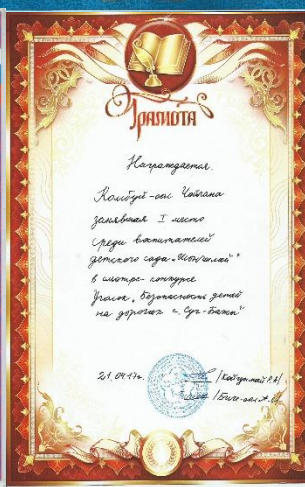 Грамота
Награждается
Комбуй-оол Чойгана
занявшая I место
среди воспитателей
детского сада „Шончалай"
в смотре-конкурсе
Уголок „Безопасность детей
на дорогах с. Суг-Бажы"
21.04.17г.